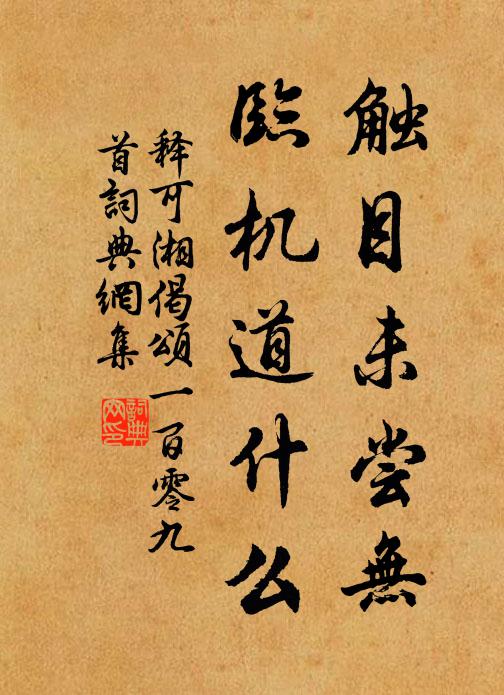 触目未尝無
臨机道什么
释可湘偈頌一百零九
首詞典網集
詞典
网印